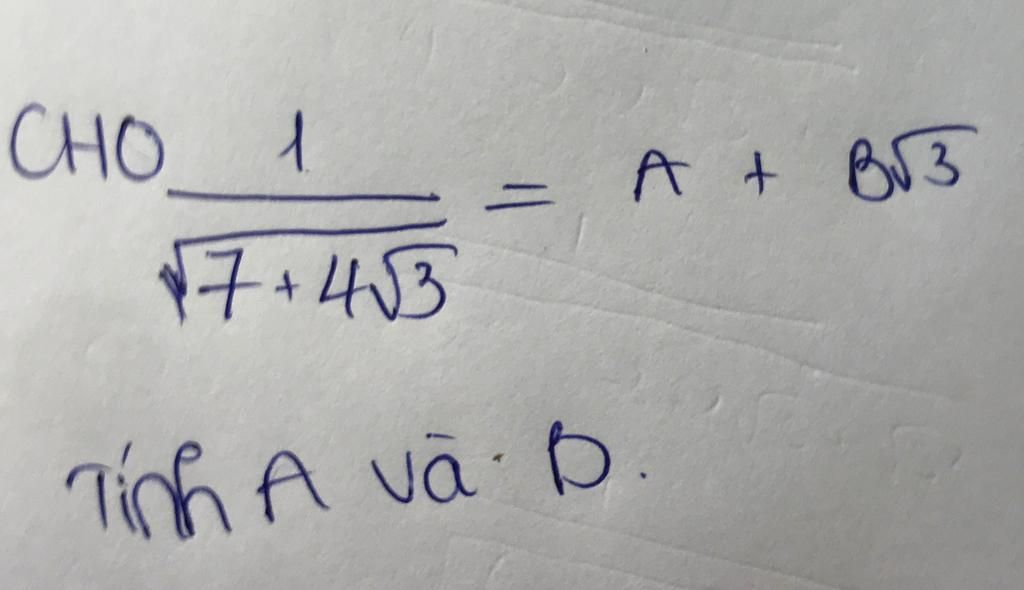 CHO 1/√(7+4√3) = A + B√3
Tính A và B.